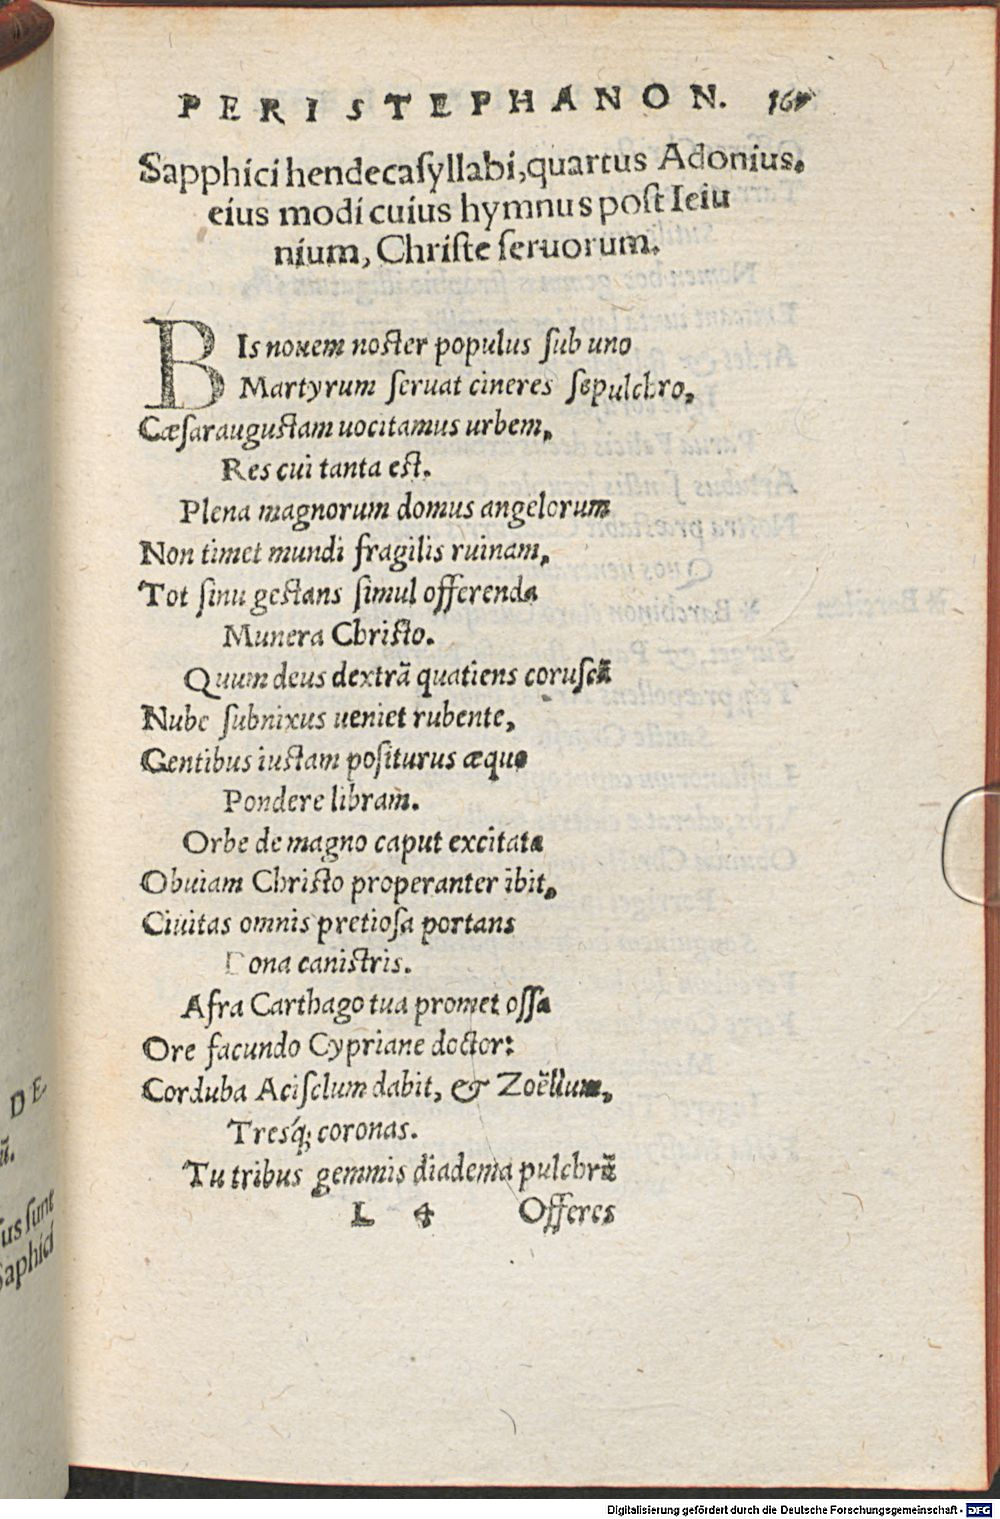 PERISTEPHANON. 167
Sapphici hendecasyllabi, quartus Adonius.
eius modi cuius hymnus post Ieiu
nium, Christe seruorum.
BIs nouem noster populus sub uno
Martyrum seruat cineres sepulchro,
Cæsaraugustam uocitamus urbem,
Res cui tanta est.
Plena magnorum domus angelorum
Non timet mundi fragilis ruinam,
Tot sinu gestans simul offerenda
Munera Christo.
Quum deus dextrã quatiens coruscã
Nube subnixus ueniet rubente,
Gentibus iustam positurus æquo
Pondere libram.
Orbe de magno caput excitata
Obuiam Christo properanter ibit,
Ciuitas omnis pretiosa portans
Dona canistris.
Afra Carthago tua promet ossa
Ore facundo Cypriane doctor:
Corduba Acisclum dabit, & Zoëllum,
Tresq́; coronas.
Tu tribus gemmis diadema pulchrũ
L 4 Offeres
DE
ũ.
sunt
Saphici
Digitalisierung gefördert durch die Deutsche Forschungsgemeinschaft - DFG